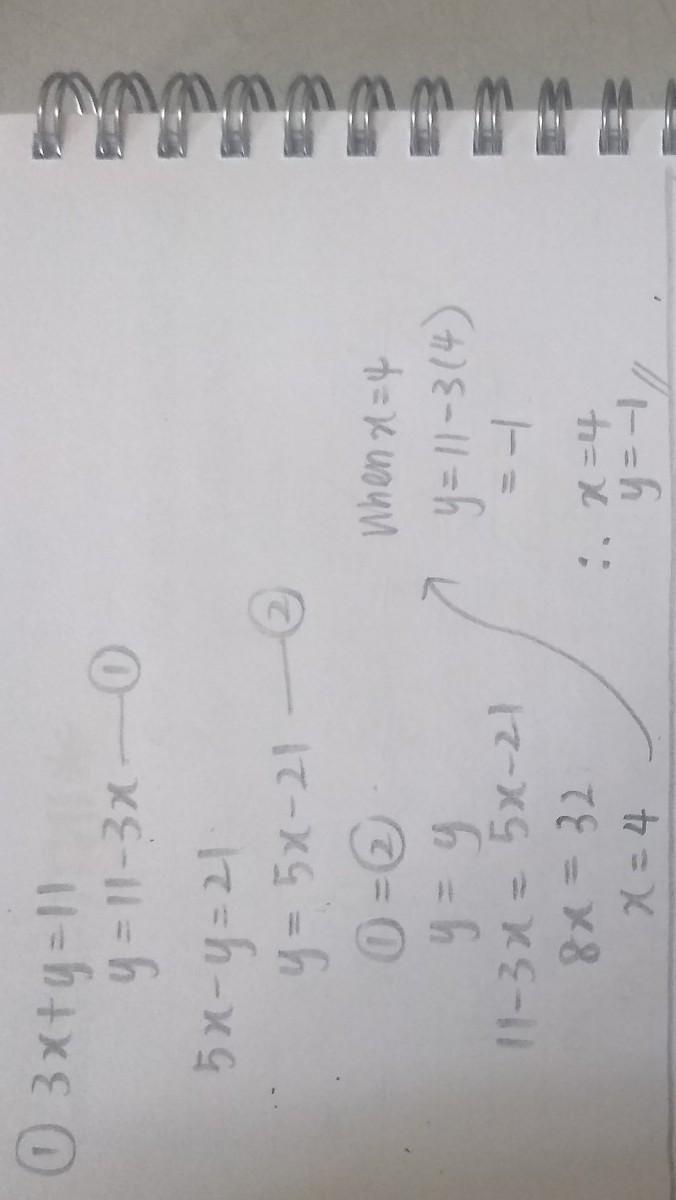 ① 3x+y=11
y=11-3x —①
5x-y=21
y=5x-21 —②
①=②
y=y
11-3x=5x-21
8x=32
x=4
When x=4
y=11-3(4)
=-1
∴ x=4
y=-1//